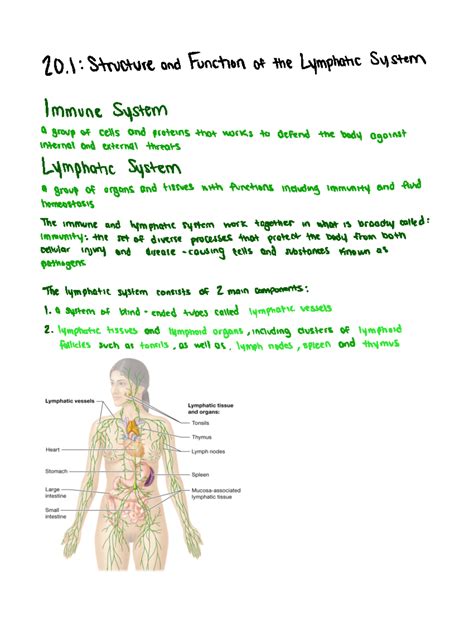 20.1: Structure and Function of the Lymphatic System
Immune System
a group of cells and proteins that works to defend the body against
internal and external threats
Lymphatic System
a group of organs and tissues with functions including immunity and fluid
homeostasis
The immune and lymphatic system work together in what is broadly called:
immunity: the set of diverse processes that protect the body from both
cellular injury and disease-causing cells and substances known as
pathogens
The lymphatic system consists of 2 main components:
1. a system of blind-ended tubes called lymphatic vessels
2. lymphatic tissues and lymphoid organs, including clusters of lymphoid
follicles such as tonsils, as well as, lymph nodes, spleen and thymus
Lymphatic vessels
Lymphatic tissue
and organs:
Tonsils
Thymus
Heart
Lymph nodes
Stomach
Spleen
Large
intestine
Mucosa-associated
lymphatic tissue
Small
intestine